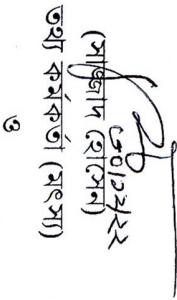 ৩০/১২/২২
(সাজ্জাদ হোসেন)
তথ্য কর্মকর্তা (মৎস্য)
ও